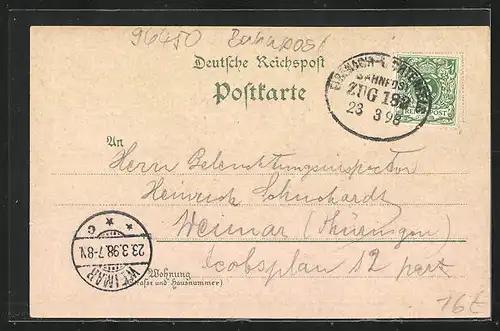 96450 Bahnpost
Deutsche Reichspost
Postkarte
EISENACH-LICHTENFELS
BAHNPOST
ZUG 192
23 3 98
REICHSPOST
An
Herrn Beleuchtungsinspector
Heinrich Schuchardt
Weimar (Thüringen)
Jacobsplan 12 part
WEIMAR
23.3.98.7-8N.
* c *
Wohnung
(Strasse und Hausnummer)
16 €